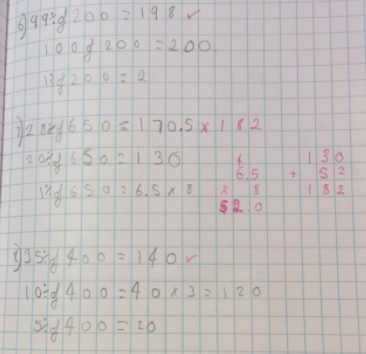 6) 99% of 200 = 198 ✓
100 of 200 = 200
1% of 200 = 2
7) 28% of 650 = 170.5 × 182
20% of 650 = 130
1% of 650 = 6.5 × 8
4
6.5
× 8
52.0
130
+ 52
182
8) 35% of 400 = 140 ✓
10% of 400 = 40 × 3 = 120
5% of 400 = 20